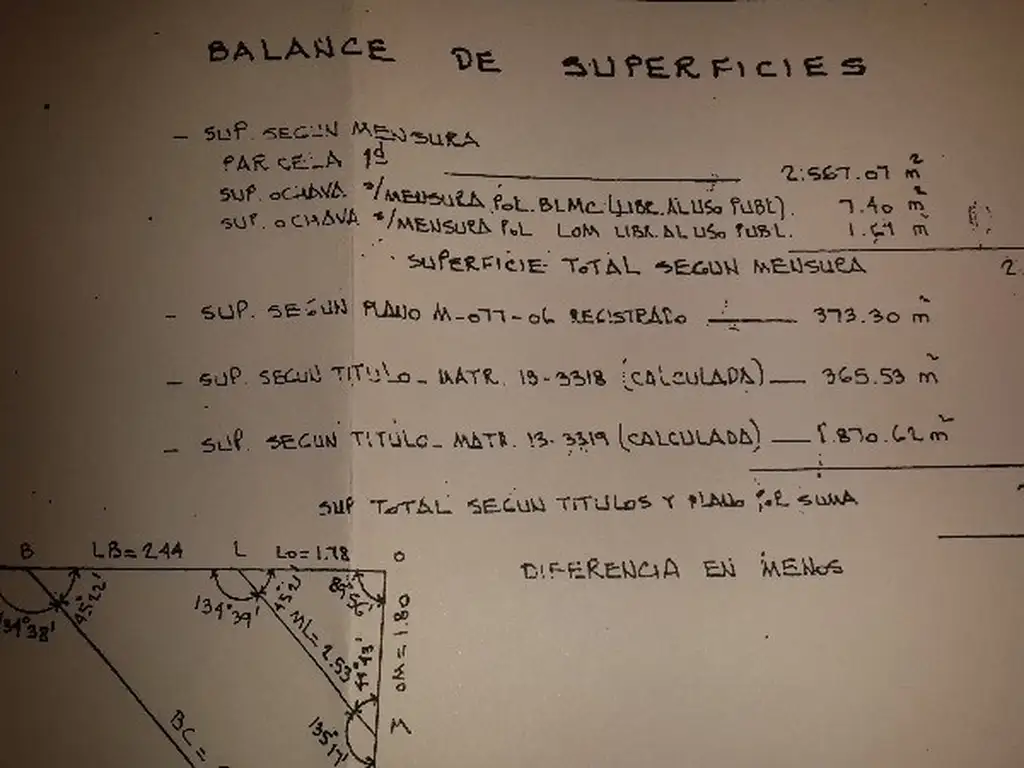 BALANCE DE SUPERFICIES
- SUP. SEGUN MENSURA
PARCELA 1d 2.567.07 m²
SUP. OCHAVA s/MENSURA POL. BLMC (LIBR. AL USO PUBL). 7.40 m²
SUP. OCHAVA s/MENSURA POL LOM LIBR. AL USO PUBL. 1.61 m²
SUPERFICIE TOTAL SEGUN MENSURA 2.
- SUP. SEGUN PLANO M-077-06 REGISTRADO 373.30 m²
- SUP. SEGUN TITULO - MATR. 13-3318 (CALCULADA) 365.53 m²
- SUP. SEGUN TITULO - MATR. 13-3319 (CALCULADA) 1.870.62 m²
SUP TOTAL SEGUN TITULOS Y PLANO POR SUMA
DIFERENCIA EN MENOS
B LB=2.44 L LO=1.78 O
134°38' 45°22' 134°39' 45°21' 89°56'
ML=2.53 44°43' OM=1.80
135°17' M
BC=